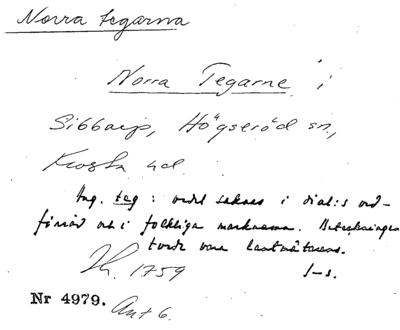 Norra tegarna
Norra Tegarne i
Sibbarp, Högseröd sn,
Frosta hd.
Ang. teg : ordet saknas i dial:s ord-
förråd och i folkliga marknamn. Beteckningen
torde vara lantmätarens.
Lh. 1759 I-s.
Nr 4979. Akt 6.